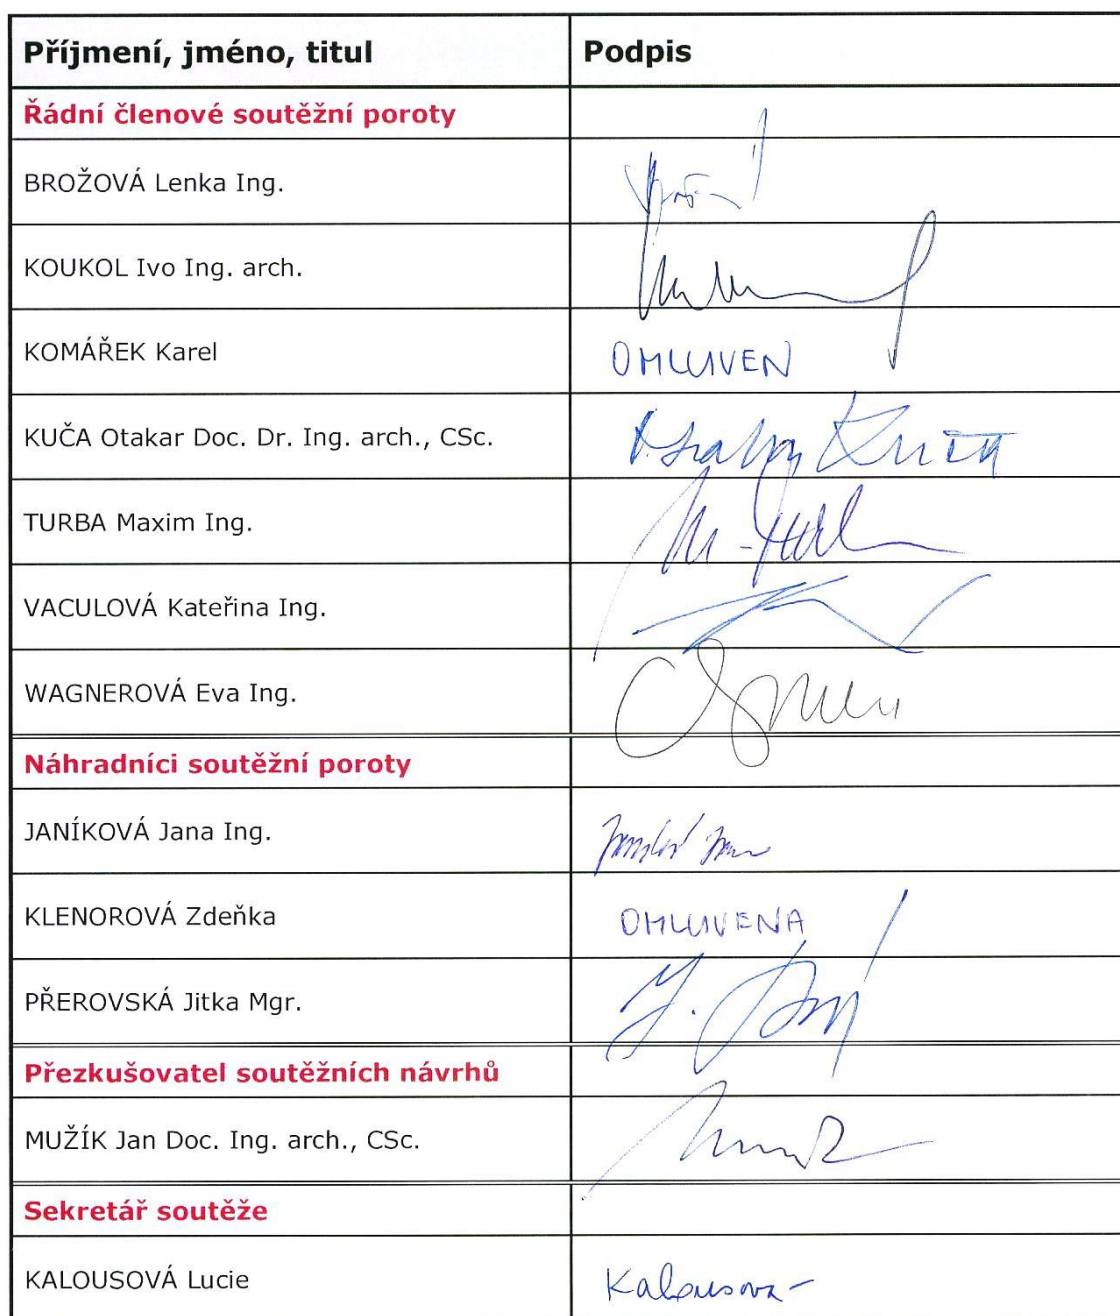 Příjmení, jméno, titul Podpis
Řádní členové soutěžní poroty
BROŽOVÁ Lenka Ing.
KOUKOL Ivo Ing. arch.
KOMÁŘEK Karel OMLUVEN
KUČA Otakar Doc. Dr. Ing. arch., CSc.
TURBA Maxim Ing.
VACULOVÁ Kateřina Ing.
WAGNEROVÁ Eva Ing.
Náhradníci soutěžní poroty
JANÍKOVÁ Jana Ing.
KLENOROVÁ Zdeňka OMLUVENA
PŘEROVSKÁ Jitka Mgr.
Přezkušovatel soutěžních návrhů
MUŽÍK Jan Doc. Ing. arch., CSc.
Sekretář soutěže
KALOUSOVÁ Lucie Kalousova